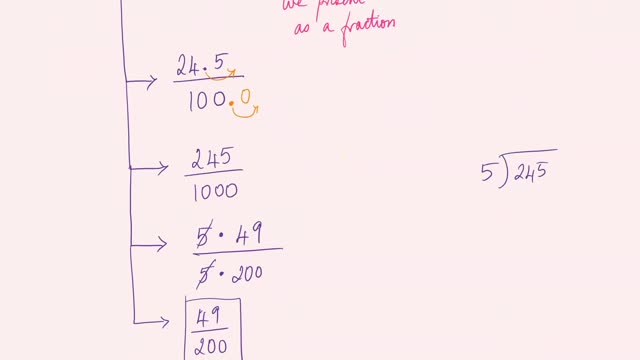 we present
as a fraction
24.5
100.0
245
1000
5 · 49
5 · 200
49
200
5)245